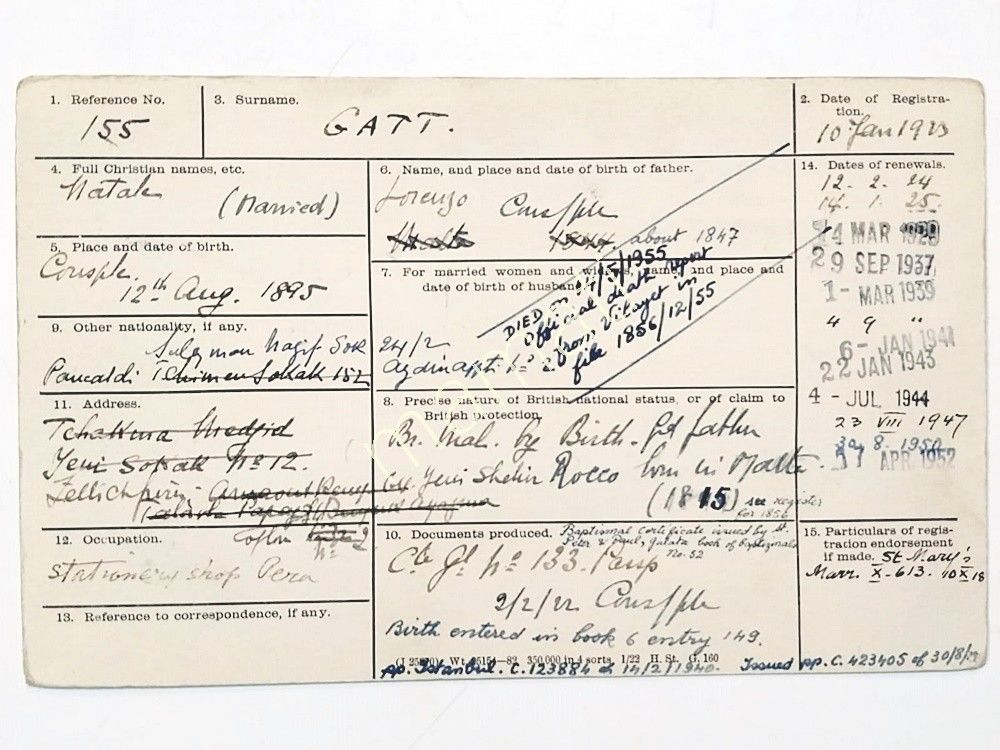 1. Reference No.
155
3. Surname.
GATT.
2. Date of Registra-
tion.
10 Jan 1923
4. Full Christian names, etc.
Natale
(Married)
6. Name, and place and date of birth of father.
Lorenzo Consple
Malta about 1847
14. Dates of renewals.
12 - 2. 24
14. 1. 25.
MAR
29 SEP 1937
1 - MAR 1939
4 9 "
6 - JAN 1941
22 JAN 1943
4 - JUL 1944
23 VIII 1947
30. 8. 1950
APR 1952
5. Place and date of birth.
Consple.
12th Aug. 1895
7. For married women and widows, name, and place and
date of birth of husband.
DIED on /5/1955
Official death report
from Vilayet in
file 1856/12/55
24/2
9. Other nationality, if any.
Suleyman Nazif Sok
Pancaldi Sokak 152
8. Precise nature of British national status, or of claim to
British protection.
Br. Mal. by Birth. Gd father
Rocco born in Malta.
(1815) see register
for 1856
11. Address.
Yeni Sokak No 12.
Yeni Shehir
12. Occupation.
Stationery shop Pera
10. Documents produced.
Baptismal Certificate issued by St.
Peter & Paul, Galata book of baptismals
No. 52
No 133.
2/2/22 Consple
Birth entered in book 6 entry 149.
15. Particulars of regis-
tration endorsement
if made. St Mary's
Marr. X - 613. 10 X 18
13. Reference to correspondence, if any.
Wt. 350,000 in 4 sorts 1/22 H. St. G. 160
pp. Istanbul. C. 123884 of 14/2/1940. Issued pp. C. 423405 of 30/8/